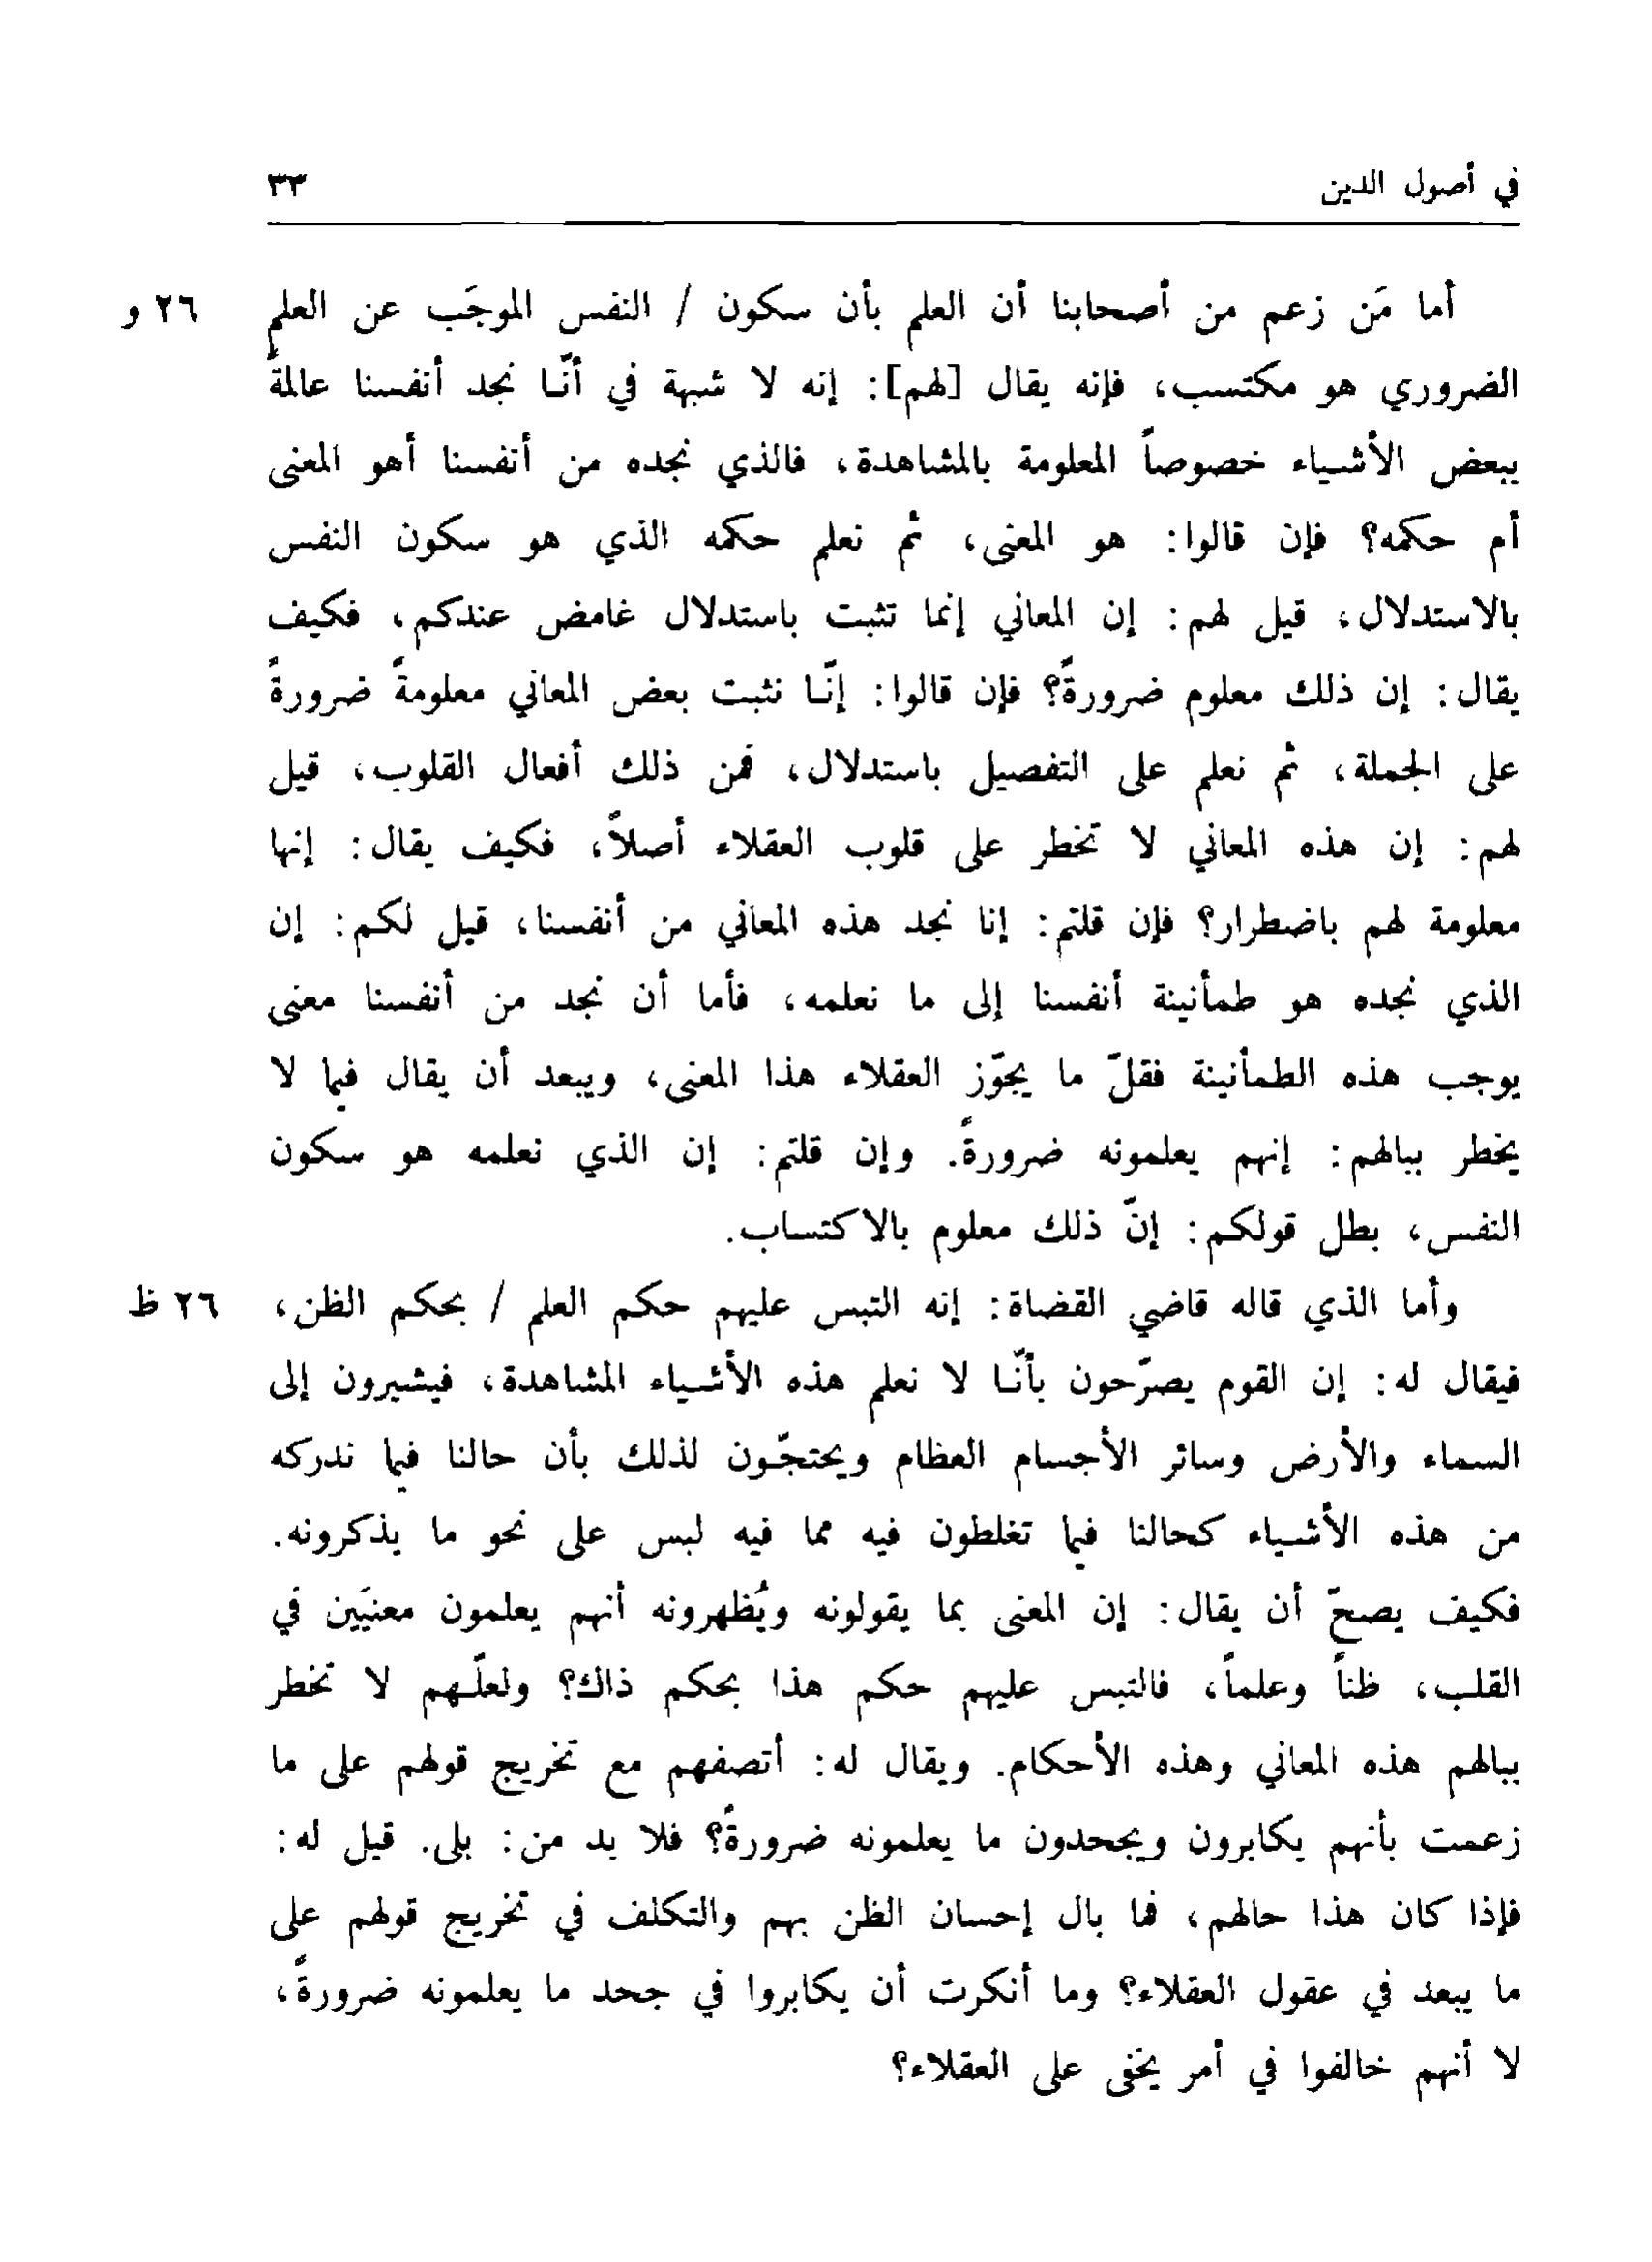 في أصول الدين ٣٣
أما مَن زعم من أصحابنا أن العلم بأن سكون / النفس الموجَب عن العلم ٢٦ و
الضروري هو مكتسب، فإنه يقال [لهم]: إنه لا شبهة في أنّا نجد أنفسنا عالمةً
ببعض الأشياء خصوصاً المعلومة بالمشاهدة، فالذي نجده من أنفسنا أهو المعنى
أم حكمه؟ فإن قالوا: هو المعنى، ثم نعلم حكمه الذي هو سكون النفس
بالاستدلال، قيل لهم: إن المعاني إنما تثبت باستدلال غامض عندكم، فكيف
يقال: إن ذلك معلوم ضرورةً؟ فإن قالوا: إنّا نثبت بعض المعاني معلومةً ضرورةً
على الجملة، ثم نعلم على التفصيل باستدلال، فمن ذلك أفعال القلوب، قيل
لهم: إن هذه المعاني لا تخطر على قلوب العقلاء أصلاً، فكيف يقال: إنها
معلومة لهم باضطرار؟ فإن قلتم: إنا نجد هذه المعاني من أنفسنا، قيل لكم: إن
الذي نجده هو طمأنينة أنفسنا إلى ما نعلمه، فأما أن نجد من أنفسنا معنى
يوجب هذه الطمأنينة فقلّ ما يجوّز العقلاء هذا المعنى، ويبعد أن يقال فيما لا
يخطر ببالهم: إنهم يعلمونه ضرورةً. وإن قلتم: إن الذي نعلمه هو سكون
النفس، بطل قولكم: إنّ ذلك معلوم بالاكتساب.
وأما الذي قاله قاضي القضاة: إنه التبس عليهم حكم العلم / بحكم الظن، ٢٦ ظ
فيقال له: إن القوم يصرّحون بأنّا لا نعلم هذه الأشياء المشاهدة، فيشيرون إلى
السماء والأرض وسائر الأجسام العظام ويحتجّون لذلك بأن حالنا فيما ندركه
من هذه الأشياء كحالنا فيما تغلطون فيه مما فيه لبس على نحو ما يذكرونه.
فكيف يصحّ أن يقال: إن المعنى بما يقولونه ويُظهرونه أنهم يعلمون معنيَين في
القلب، ظناً وعلماً، فالتبس عليهم حكم هذا بحكم ذاك؟ ولعلّهم لا تخطر
ببالهم هذه المعاني وهذه الأحكام. ويقال له: أتصفهم مع تخريج قولهم على ما
زعمت بأنهم يكابرون ويجحدون ما يعلمونه ضرورةً؟ فلا بد من: بلى. قيل له:
فإذا كان هذا حالهم، فما بال إحسان الظن بهم والتكلف في تخريج قولهم على
ما يبعد في عقول العقلاء؟ وما أنكرت أن يكابروا في جحد ما يعلمونه ضرورةً،
لا أنهم خالفوا في أمر يخفى على العقلاء؟